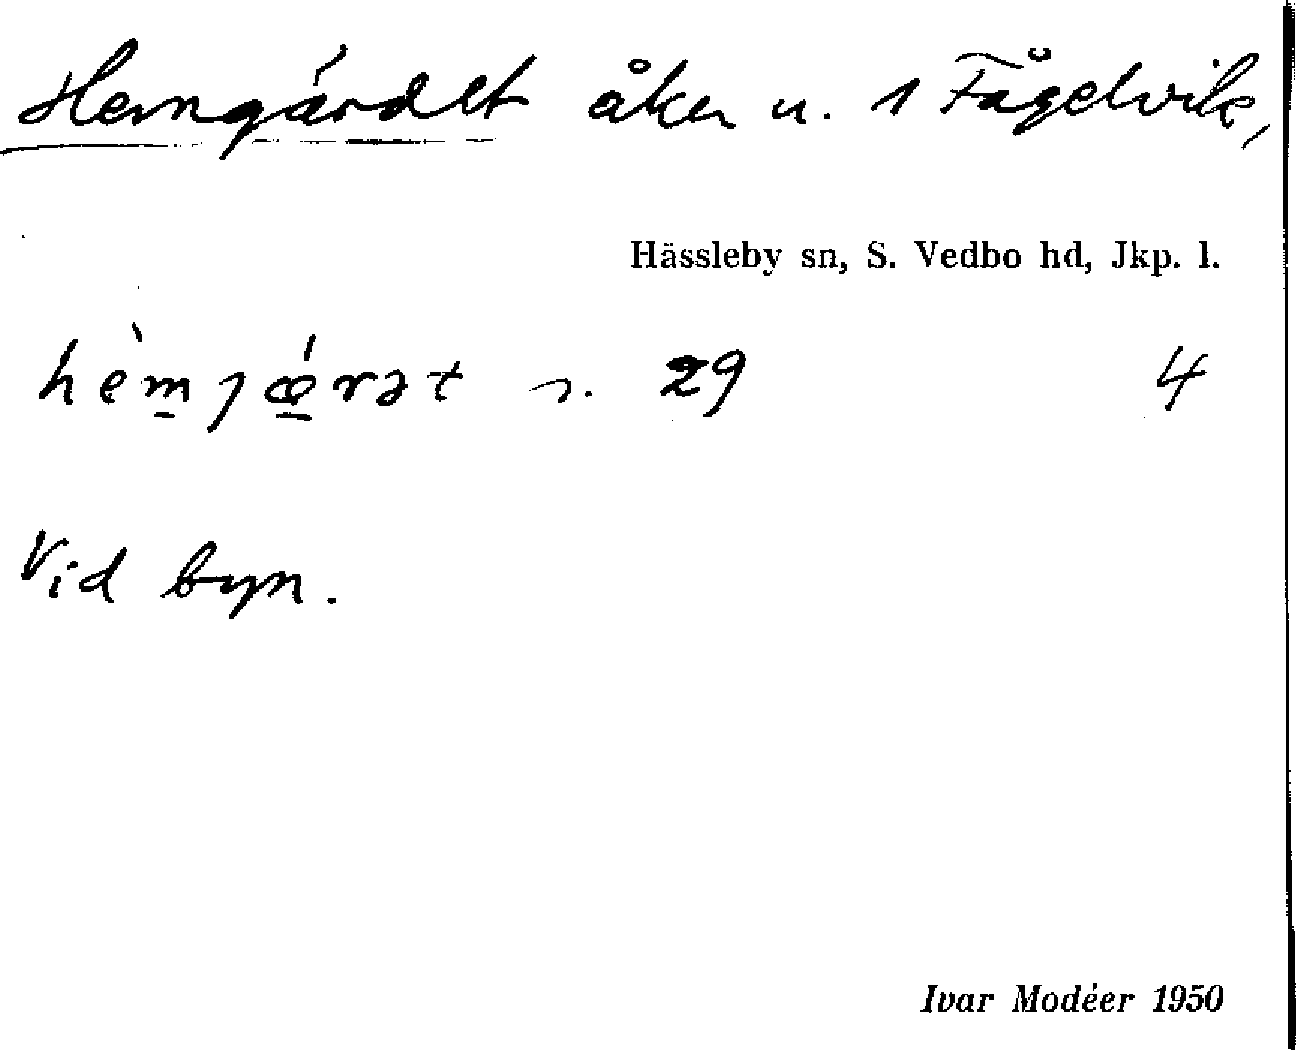 Hemgärdet åker u. 1 Fågelvik,
Hässleby sn, S. Vedbo hd, Jkp. l.
hèm̲ȷœ̲́rət n. 29 4
Vid byn.
Ivar Modéer 1950